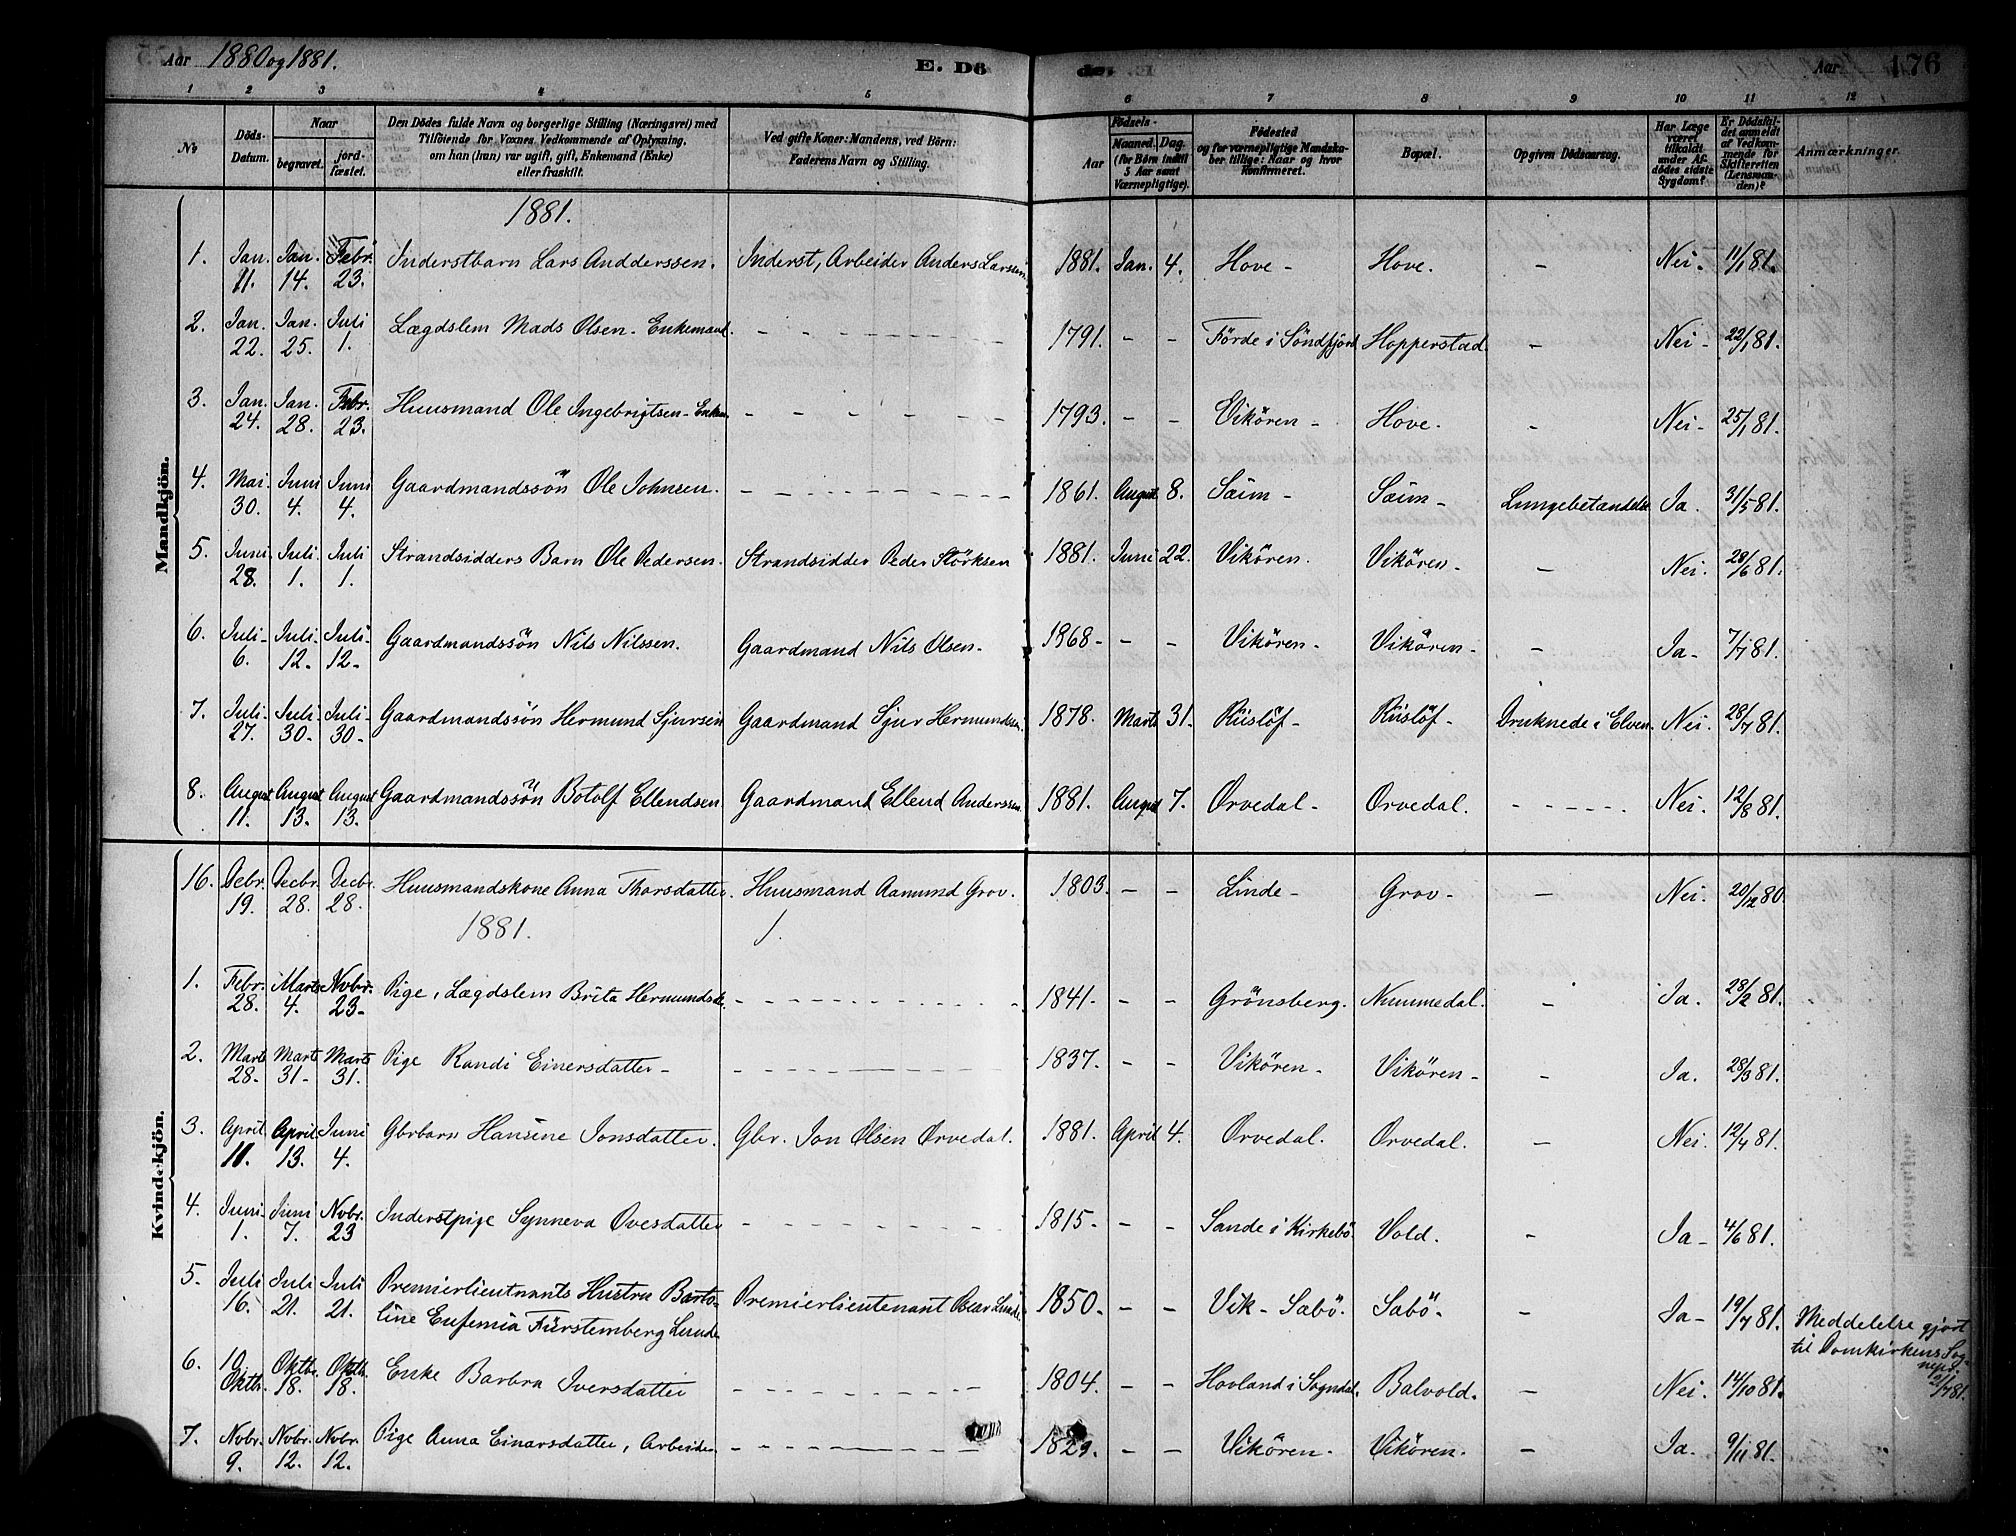 Aar 1880 og 1881. E. Dö de. Aar 176
1 2 3 4 5 6 7 8 9 10 11 12
No. Döds-Datum. Naar begravet. jordfæstet. Den Dödes fulde Navn og borgerlige Stilling (Næringsvei) med Tilföiende for Voxnes Vedkommende af Oplysning, om han (hun) var ugift, gift, Enkemand (Enke) eller fraskilt. Ved gifte Koner: Mandens, ved Börn: Faderens Navn og Stilling. Aar Födsels- Maaned. Dag. (for Börn indtil 5 Aar samt Værnepligtige). Födested og for værnepligtige Mandskaber tillige: Naar og hvor konfirmeret. Bopæl. Opgiven Dödsaarsag. Har Læge været tilkaldt under Afdödes sidste Sygdom? Er Dödsfaldet anmeldt af Vedkommende for Skifteretten (Lensmanden)? Anmærkninger.
Mandkjön.
1881.
1. Jan. 11. Jan. 14. Febr. 23. Inderstbarn Lars Andderssen. Inderst, Arbeider Anders Larssen 1881. Jan. 4. Hove - Hove. - Nei. 11/1 81.
2. Jan. 22. Jan. 25. Juli 1. Lægdslem Mads Olsen - Enkemand. - - - 1791. - - Förde i Söndfjord Hopperstad. - Nei - 22/1 81.
3. Jan. 24. Jan. 28. Febr. 23. Huusmand Ole Ingebrigtsen - Enkem - - - 1793. - - Vikören - Hove. - Nei - 25/1 81.
4. Mai. 30. Juni 4. Juni 4. Gaardmandssön Ole Johnsen. - - - 1861. August 8. Saim - Saim - Lungebetændelse Ja. 31/5 81.
5. Juni 28. Juli 1. Juli 1. Strandsidders Barn Ole Pedersen. Strandsidder Peder Störksen 1881. Juni 22. Vikören. Vikören - - Nei. 28/6 81.
6. Juli - 6. Juli. 12. Juli - 12. Gaardmandssön Nils Nilssen. Gaardmand Nils Olsen - 1868 - - - Vikören - Vikören - - Ja - 7/7 81.
7. Juli - 27. Juli - 30. Juli - 30. Gaardmandssön Hermund Sjursen Gaardmand Sjur Hermundsen. 1878. Marts 31. Riislöf - Riislöf - Druknede i Elven. Nei. 28/7 81.
8. August 11. August 13. August 13. Gaardmandssön Botolf Ellendsen Gaardmand Ellend Anderssen. 1881. August 7. Orvedal - Orvedal. - - - Nei. 12/8 81.
Kvindekjön.
16. Debr. 19. Decbr. 28. Decbr. 28. Huusmandskone Anna Thorsdatter. Huusmand Aamund Grov. 1803. - - Linde - Grov - - Nei. 20/12 80.
1881. 1.
1. Febr. 28. Marts 4. Novbr. 23. Pige, Lægdslem Brita Hermundsdr. - - - 1841. - - Grönsberg. Nummedal. - Ja. 28/2 81.
2. Marts 28. Marts 31. Marts 31. Pige Randi Einersdatter - - - - 1837. - - Vikören - Vikören - - Ja. 28/3 81.
3. April 11. April 13. Juni 4. Gbrbarn Hansine Jonsdatter. Gbr. Jon Olsen Orvedal. 1881. April 4. Orvedal. Orvedal. - Nei. 12/4 81.
4. Juni 1. Juni 7. Novbr. 23 Inderstpige Synneva Ovesdatter - - - 1815. - - Sande i Kirkebö. Vold. - Ja - 4/6 81.
5. Juli 16. Juli 21. Juli 21. Premierlieutnants Hustru Bartoline Eufemia Fürstemberg Lunde Premierlieutenant Oscar Lunde 1850. - - Vik - Sabö. Sabö - - Ja - 19/7 81. Meddelelse gjort til Domkirkens Sognepr. 21/7 81.
6. 10 Oktb. Oktbr. 18. Oktb. 18. Enke Barbra Iversdatter - - - 1804. - - Hovland i Sogndal. Balvold. - Nei. 14/10 81.
7. Novbr. 9. Novbr. 12. Novbr. 12. Pige Anna Einarsdatter, Arbeider - - - 1829. - - Vikören. Vikören. - Ja. 9/11 81.